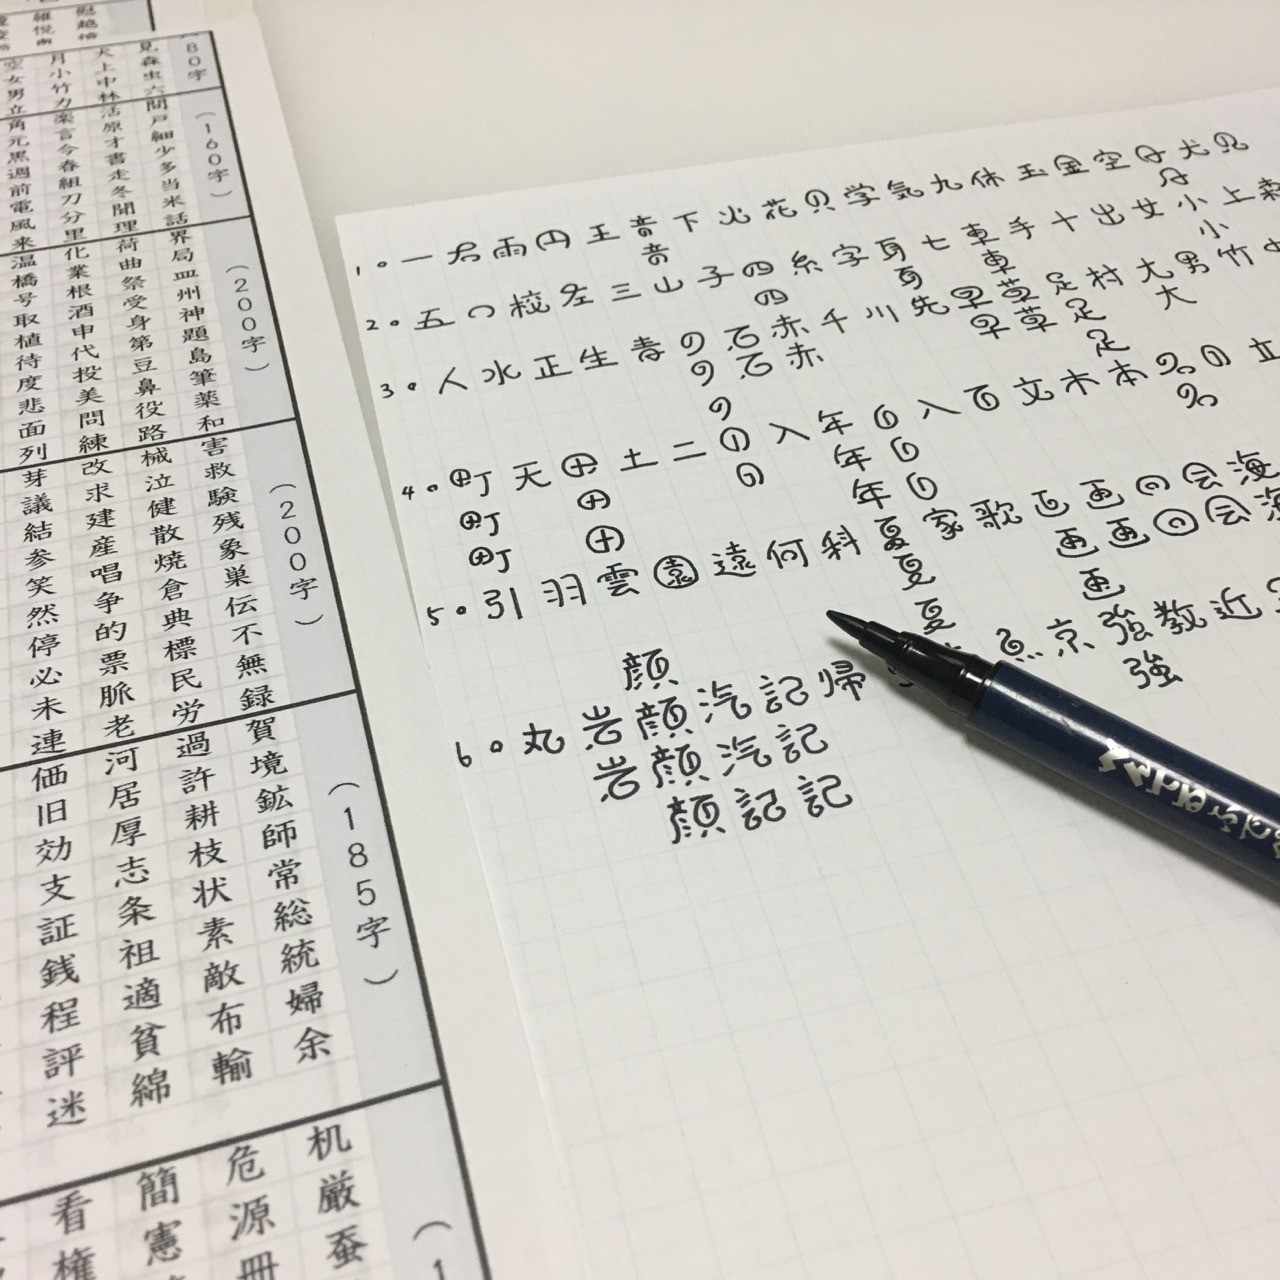 1。一右雨円王音下火花貝学気九休玉金空月犬見
音 月
2。五口校左三山子四糸字耳七車手十出女小上森
四 耳 車 小
3。人水正生青夕石赤千川先早草足村大男竹中
夕石赤 早草足 大
夕 足
4。町天田土二日入年日入百文木本名目立
町 田 日 年日 名
町 田 年日
5。引羽雲園遠何科夏家歌画画回会海
夏 画画回会海
夏 画
顔
6。丸岩顔汽記帰 魚京強教近
岩顔汽記 強
顔記記
見森虫六
犬上中林
月小竹力
空女男立
80字)
間戸細少多当米話
活原才書走冬聞理
楽言今春組刀分里
角元黒週前電風来
(160字)
界局皿州神題島筆薬和
荷曲祭受身第豆鼻役路
化業根酒申代投美問練
温橋号取植待度悲面列
(200字)
害救験残象巣伝不無録
械泣健散焼倉典標民労
改求建産唱争的票脈老
芽議結参笑然停必未連
(200字)
賀境鉱師常総統婦余
過許耕枝状素敵布輸
河居厚志条祖適貧綿
価旧効支証銭程評迷
(185字)
机厳蚕
危源冊
簡憲
看権
(1